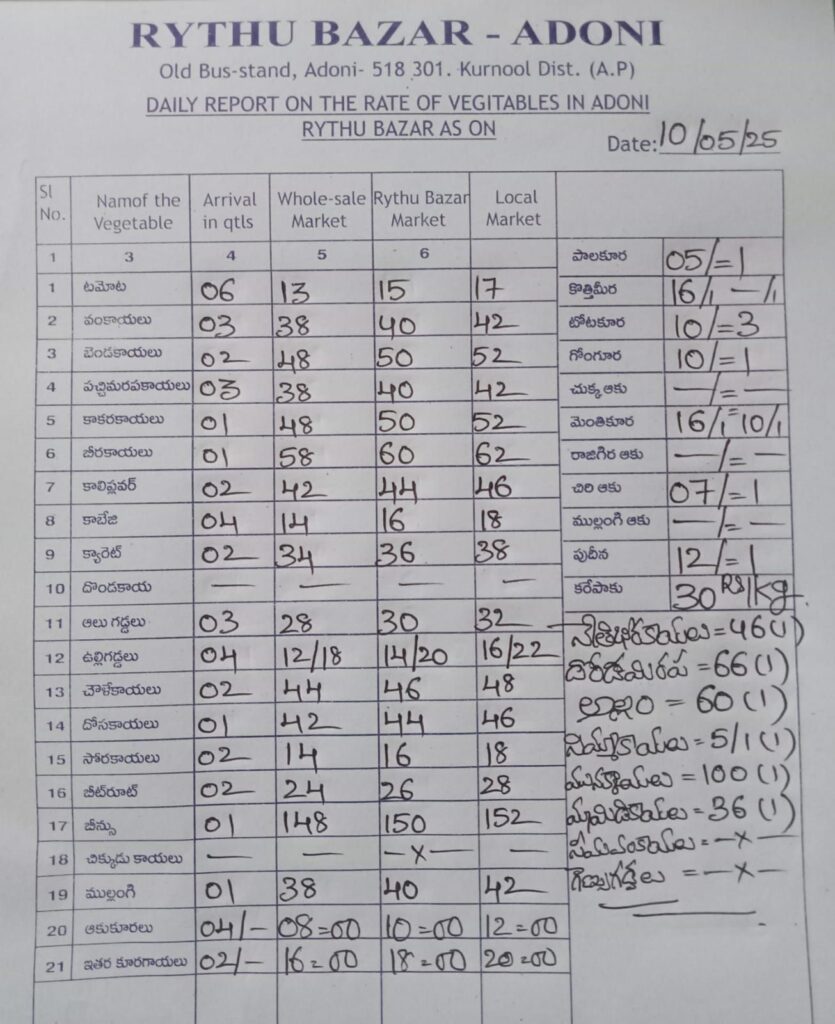 RYTHU BAZAR - ADONI
Old Bus-stand, Adoni- 518 301. Kurnool Dist. (A.P)
DAILY REPORT ON THE RATE OF VEGITABLES IN ADONI
RYTHU BAZAR AS ON
Date: 10/05/25
Sl No. Namof the Vegetable Arrival in qtls Whole-sale Market Rythu Bazar Market Local Market
1 3 4 5 6
1 టమోట 06 13 15 17
2 వంకాయలు 03 38 40 42
3 బెండకాయలు 02 48 50 52
4 పచ్చిమిరపకాయలు 03 38 40 42
5 కాకరకాయలు 01 48 50 52
6 బీరకాయలు 01 58 60 62
7 కాలిఫ్లవర్ 02 42 44 46
8 కాబేజి 04 14 16 18
9 క్యారెట్ 02 34 36 38
10 దొండకాయ — — — —
11 ఆలు గడ్డలు 03 28 30 32
12 ఉల్లిగడ్డలు 04 12/18 14/20 16/22
13 చౌళేకాయలు 02 44 46 48
14 దోసకాయలు 01 42 44 46
15 సోరకాయలు 02 14 16 18
16 బీట్‌రూట్ 02 24 26 28
17 బీన్సు 01 148 150 152
18 చిక్కుడు కాయలు — — -x- —
19 ముల్లంగి 01 38 40 42
20 ఆకుకూరలు 04/- 08=00 10=00 12=00
21 ఇతర కూరగాయలు 02/- 16=00 18=00 20=00
పాలకూర 05/=1
కొత్తిమీర 16/1 —/1
టోటకూర 10/=3
గోంగూర 10/=1
చుక్క ఆకు —/=—
మెంతికూర 16/1=10/1
రాజిగిర ఆకు —/=—
చిరి ఆకు 07/=1
ముల్లంగి ఆకు —/=—
పుదీన 12/=1
కరేపాకు 30 RS/kg
= 46 (1)
= 66 (1)
అల్లం = 60 (1)
నిమ్మకాయలు = 5/1 (1)
= 100 (1)
మామిడికాయలు = 36 (1)
= —x—
= —x—